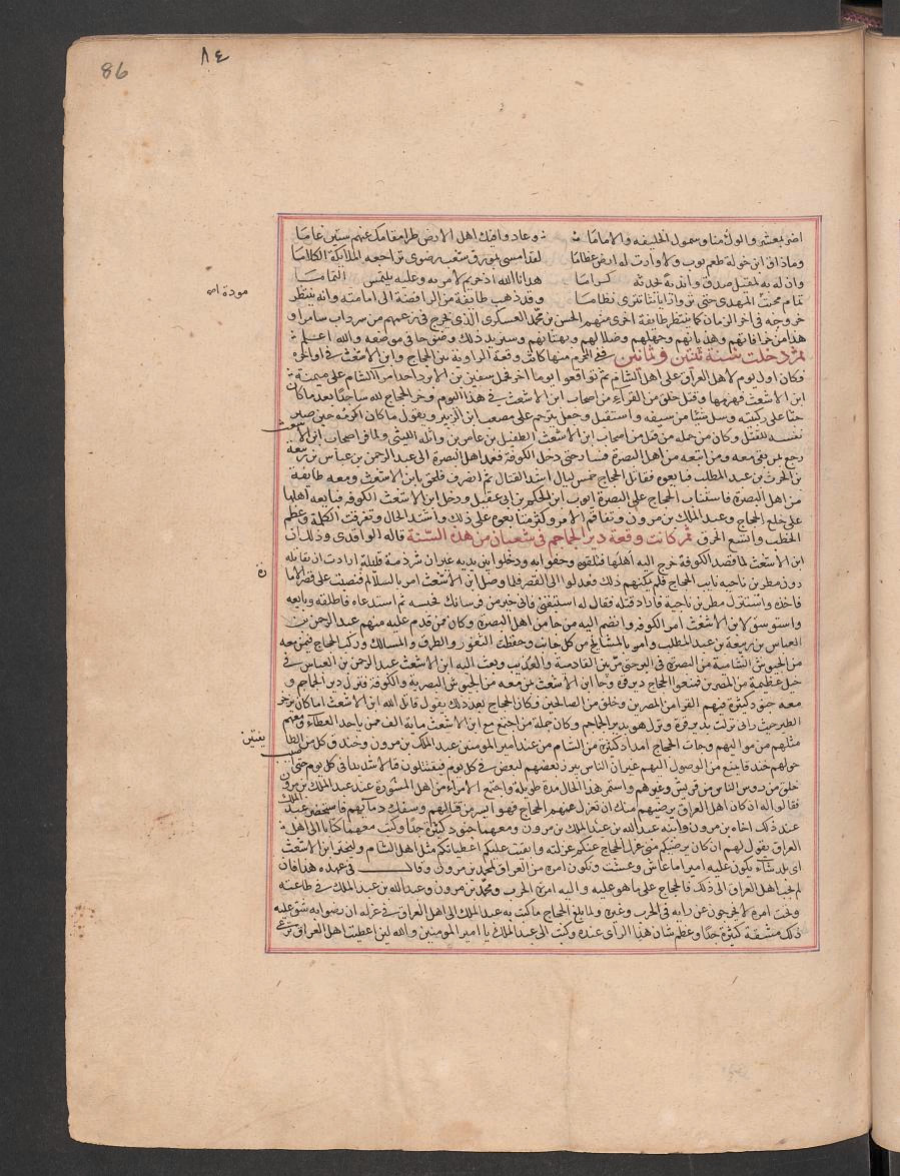 86
٨٤
اضر بمعشر والوك منا وسموك الخليفه والاماما وعادوا فيك اهل الارض طرا مقامك عنهم ستين عاما
وما ذاق ابن خولة طعم موت ولا وارت له ارض عظاما لقد امسى بمورق شعب رضوى تراجعه الملايكة الكلاما
وان له به لمقيل صدق واندية تحدثه كراما هدانا الله اذ حزتم لامر به وعليه يلتمس التماما
تمام مودة المهدى حتى تروا راياتنا تترى نظاما وقد ذهب طايفة من الرافضة الى امامته وانه ينتظر
خروجه فى اخر الزمان كما ينتظر طايفة اخرى منهم الحسن بن محمد العسكرى الذى يخرج فى زعمهم من سرداب سامرا و
هذا من خرافاتهم وهذيانهم وجهلهم وضلالهم وبهتانهم وسنزيد ذلك وضوحا فى موضعه والله اعلم
ثم دخلت سنة ثلثين وثمانين ففى المحرم منها كانت وقعة الزاوية بين الحجاج وابن الاشعث فى اواخره
وكان اول يوم لاهل العراق على اهل الشام ثم تواقعوا يوما اخر فحمل سفين بن الابرد احد امرآ الشام على ميمنة
ابن الاشعث فهزمها وقتل خلق من القرآء من اصحاب ابن الاشعث فى هذا اليوم وخر الحجاج لله ساجدا بعد ما كان
جثا على ركبتيه وسل شيئا من سيفه واستقبل وجعل يترحم على مصعب ابن الزبير ويقول ما كان اكرمه حين صبر
نفسه للقتل وكان من جملة من قتل من اصحاب ابن الاشعث الطفيل بن عامر بن واثلة الليثى ولما فر اصحاب ابن الاشعث
رجع بمن بقى معه ومن اتبعه من اهل البصرة فسار حتى دخل الكوفة فعمد اهل البصرة الى عبد الرحمن بن عباس بن ربيعة
بن الحرث بن عبد المطلب فبايعوه فقاتل الحجاج خمس ليال اشد القتال ثم انصرف فلحق بابن الاشعث ومعه طايفة
من اهل البصرة فاستناب الحجاج على البصرة ايوب ابن الحكم بن ابى عقيل ودخل ابن الاشعث الكوفه فبايعه اهلها
على خلع الحجاج وعبد الملك بن مرون وتفاقم الامر وكثر متابعوه على ذلك واشتد الحال وتفرقت الكلمة وعظم
الخطب واتسع الخرق ثم كانت وقعة دير الجماجم فى شعبان من هذه السنة قاله الواقدى وذلك ان
ابن الاشعث لما قصد الكوفة خرج اليه اهلها فتلقوه وحفوا به ودخلوا بين يديه غير ان شرذمة قليلة ارادت ان يقاتله
دون مطر بن ناجيه نايب الحجاج فلم يمكنهم ذلك فعدلوا الى القصر فلما وصل ابن الاشعث امر بالسلالم فنصبت على قصر الاما
فاخذه واستنزل مطر بن ناجية فاراد قتله فقال له استبقنى فانى خير من فرسانك فحبسه ثم استدعاه فاطلقه وبايعه
واستوسق لابن الاشعث امر الكوفه وانضم اليه من جا من اهل البصرة وكان ممن قدم عليه منهم عبد الرحمن بن
العباس بن ربيعة بن عبد المطلب وامر بالمسالح من كل جانب وحفظت الثغور والطرق والمسالك وركب الحجاج فيمن معه
من الجيوش الشامية من البصرة فى البر حتى مر بين القادسية والعذيب وبعث اليه ابن الاشعث عبد الرحمن بن العباس فى
خيل عظيمة من المصريين فمنعوا الحجاج دير قرة وجا ابن الاشعث بمن معه من الجيوش البصرية والكوفة فنزل دير الجماجم و
معه جنود كثيرة فيهم القرا من المصرين وخلق من الصالحين وكان الحجاج بعد ذلك يقول قاتل الله ابن الاشعث اما كان يزجر
الطير حيث رانى نزلت بدير قرة ونزل هو بدير الجماجم وكان جملة من اجتمع مع ابن الاشعث ماية الف ممن ياخذ العطاء ومعهم
مثلهم من مواليهم وجات الحجاج امداد كثيرة من الشام من عند امير المومنين عبد الملك بن مرون وخندق كل من الطا يفتين
حولهم خندقا يمنع من الوصول اليهم غير ان الناس يبرز بعضهم لبعض فى كل يوم فيقتتلون قتالا شديدا فى كل يوم حتى
خلق من روس الناس من قريش وغيرهم واستمر هذا الحال مدة طويلة واجتمع الامراء من اهل المشورة عند عبد الملك بن مرون
فقالوا له ان كان اهل العراق يرضيهم منك ان تعزل عنهم الحجاج فهو ايسر من قتالهم وسفك دمايهم فاستحضر عبد الملك
عند ذلك اخاه محمد بن مرون وابنه عبد الله بن عبد الملك بن مرون ومعهما جنود كثيرة جدا وكتب معهما كتابا الى اهل
العراق يقول لهم ان كان يرضيكم منى عزل الحجاج عنكم عزلته وابقيت عليكم اعطياتكم مثل اهل الشام وليختر ابن الاشعث
اى بلد شاء يكون عليه اميرا ما عاش وعشت وتكون امرة من العراق لمحمد بن مرون وقال فى عهده هذا فان
لم يجب اهل العراق الى ذلك فالحجاج على ما هو عليه واليه امرة الحرب ومحمد بن مرون وعبد الله بن عبد الملك فى طاعته
وتحت امره لا يخرجون عن رايه فى الحرب وغيره ولما بلغ الحجاج ما كتب به عبد الملك الى اهل العراق فى عزله ان رضوا به شق عليه
ذلك مشقة كثيرة جدا وعظم شان هذا الراى عنده وكتب الى عبد الملك يا امير المومنين والله لين اعطيت اهل العراق نزعى
مودة